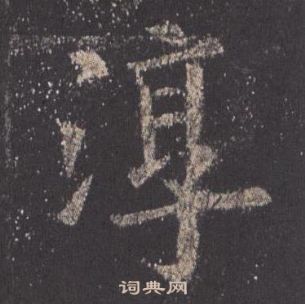 淳
词典网